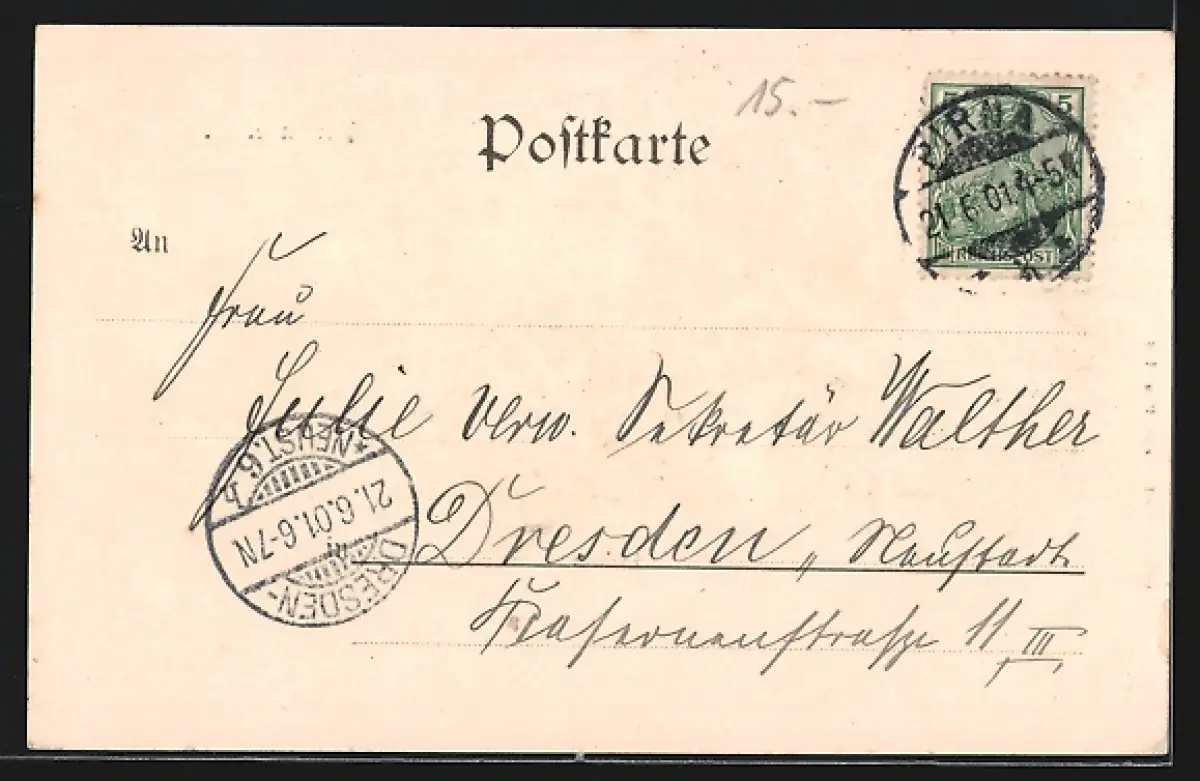 15.-
Postkarte
5
PIRN
21.6.01.4-5N
REICHSPOST
An
Frau
Julie verw. Sekretär Walther
Dresden, Neustadt.
Kasernenstraße 11 III
DRESDEN-
21.6.01.6-7N
*NEUST.6.